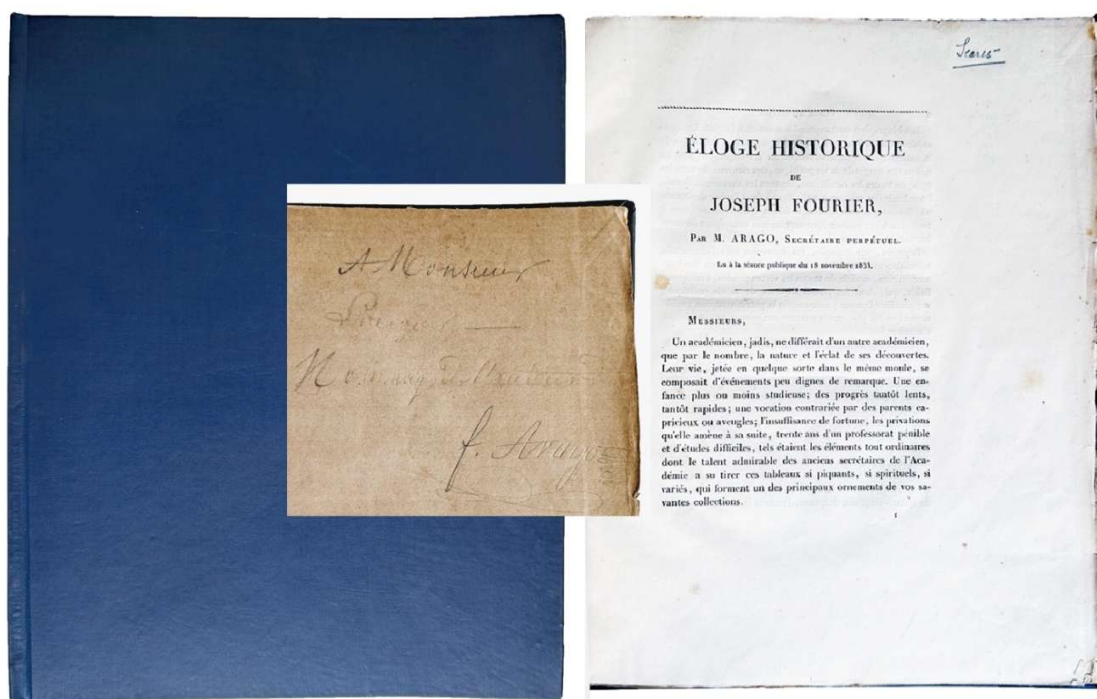 A Monsieur
f. Arago
ÉLOGE HISTORIQUE
DE
JOSEPH FOURIER,
PAR M. ARAGO, SECRÉTAIRE PERPÉTUEL.
Lu à la séance publique du 18 novembre 1833.
MESSIEURS,
Un académicien, jadis, ne différait d'un autre académicien,
que par le nombre, la nature et l'éclat de ses découvertes.
Leur vie, jetée en quelque sorte dans le même moule, se
composait d'événements peu dignes de remarque. Une en-
fance plus ou moins studieuse; des progrès tantôt lents,
tantôt rapides; une vocation contrariée par des parents ca-
pricieux ou aveugles; l'insuffisance de fortune, les privations
qu'elle amène à sa suite, trente ans d'un professorat pénible
et d'études difficiles, tels étaient les éléments tout ordinaires
dont le talent admirable des anciens secrétaires de l'Aca-
démie a su tirer ces tableaux si piquants, si spirituels, si
variés, qui forment un des principaux ornements de vos sa-
vantes collections.
1